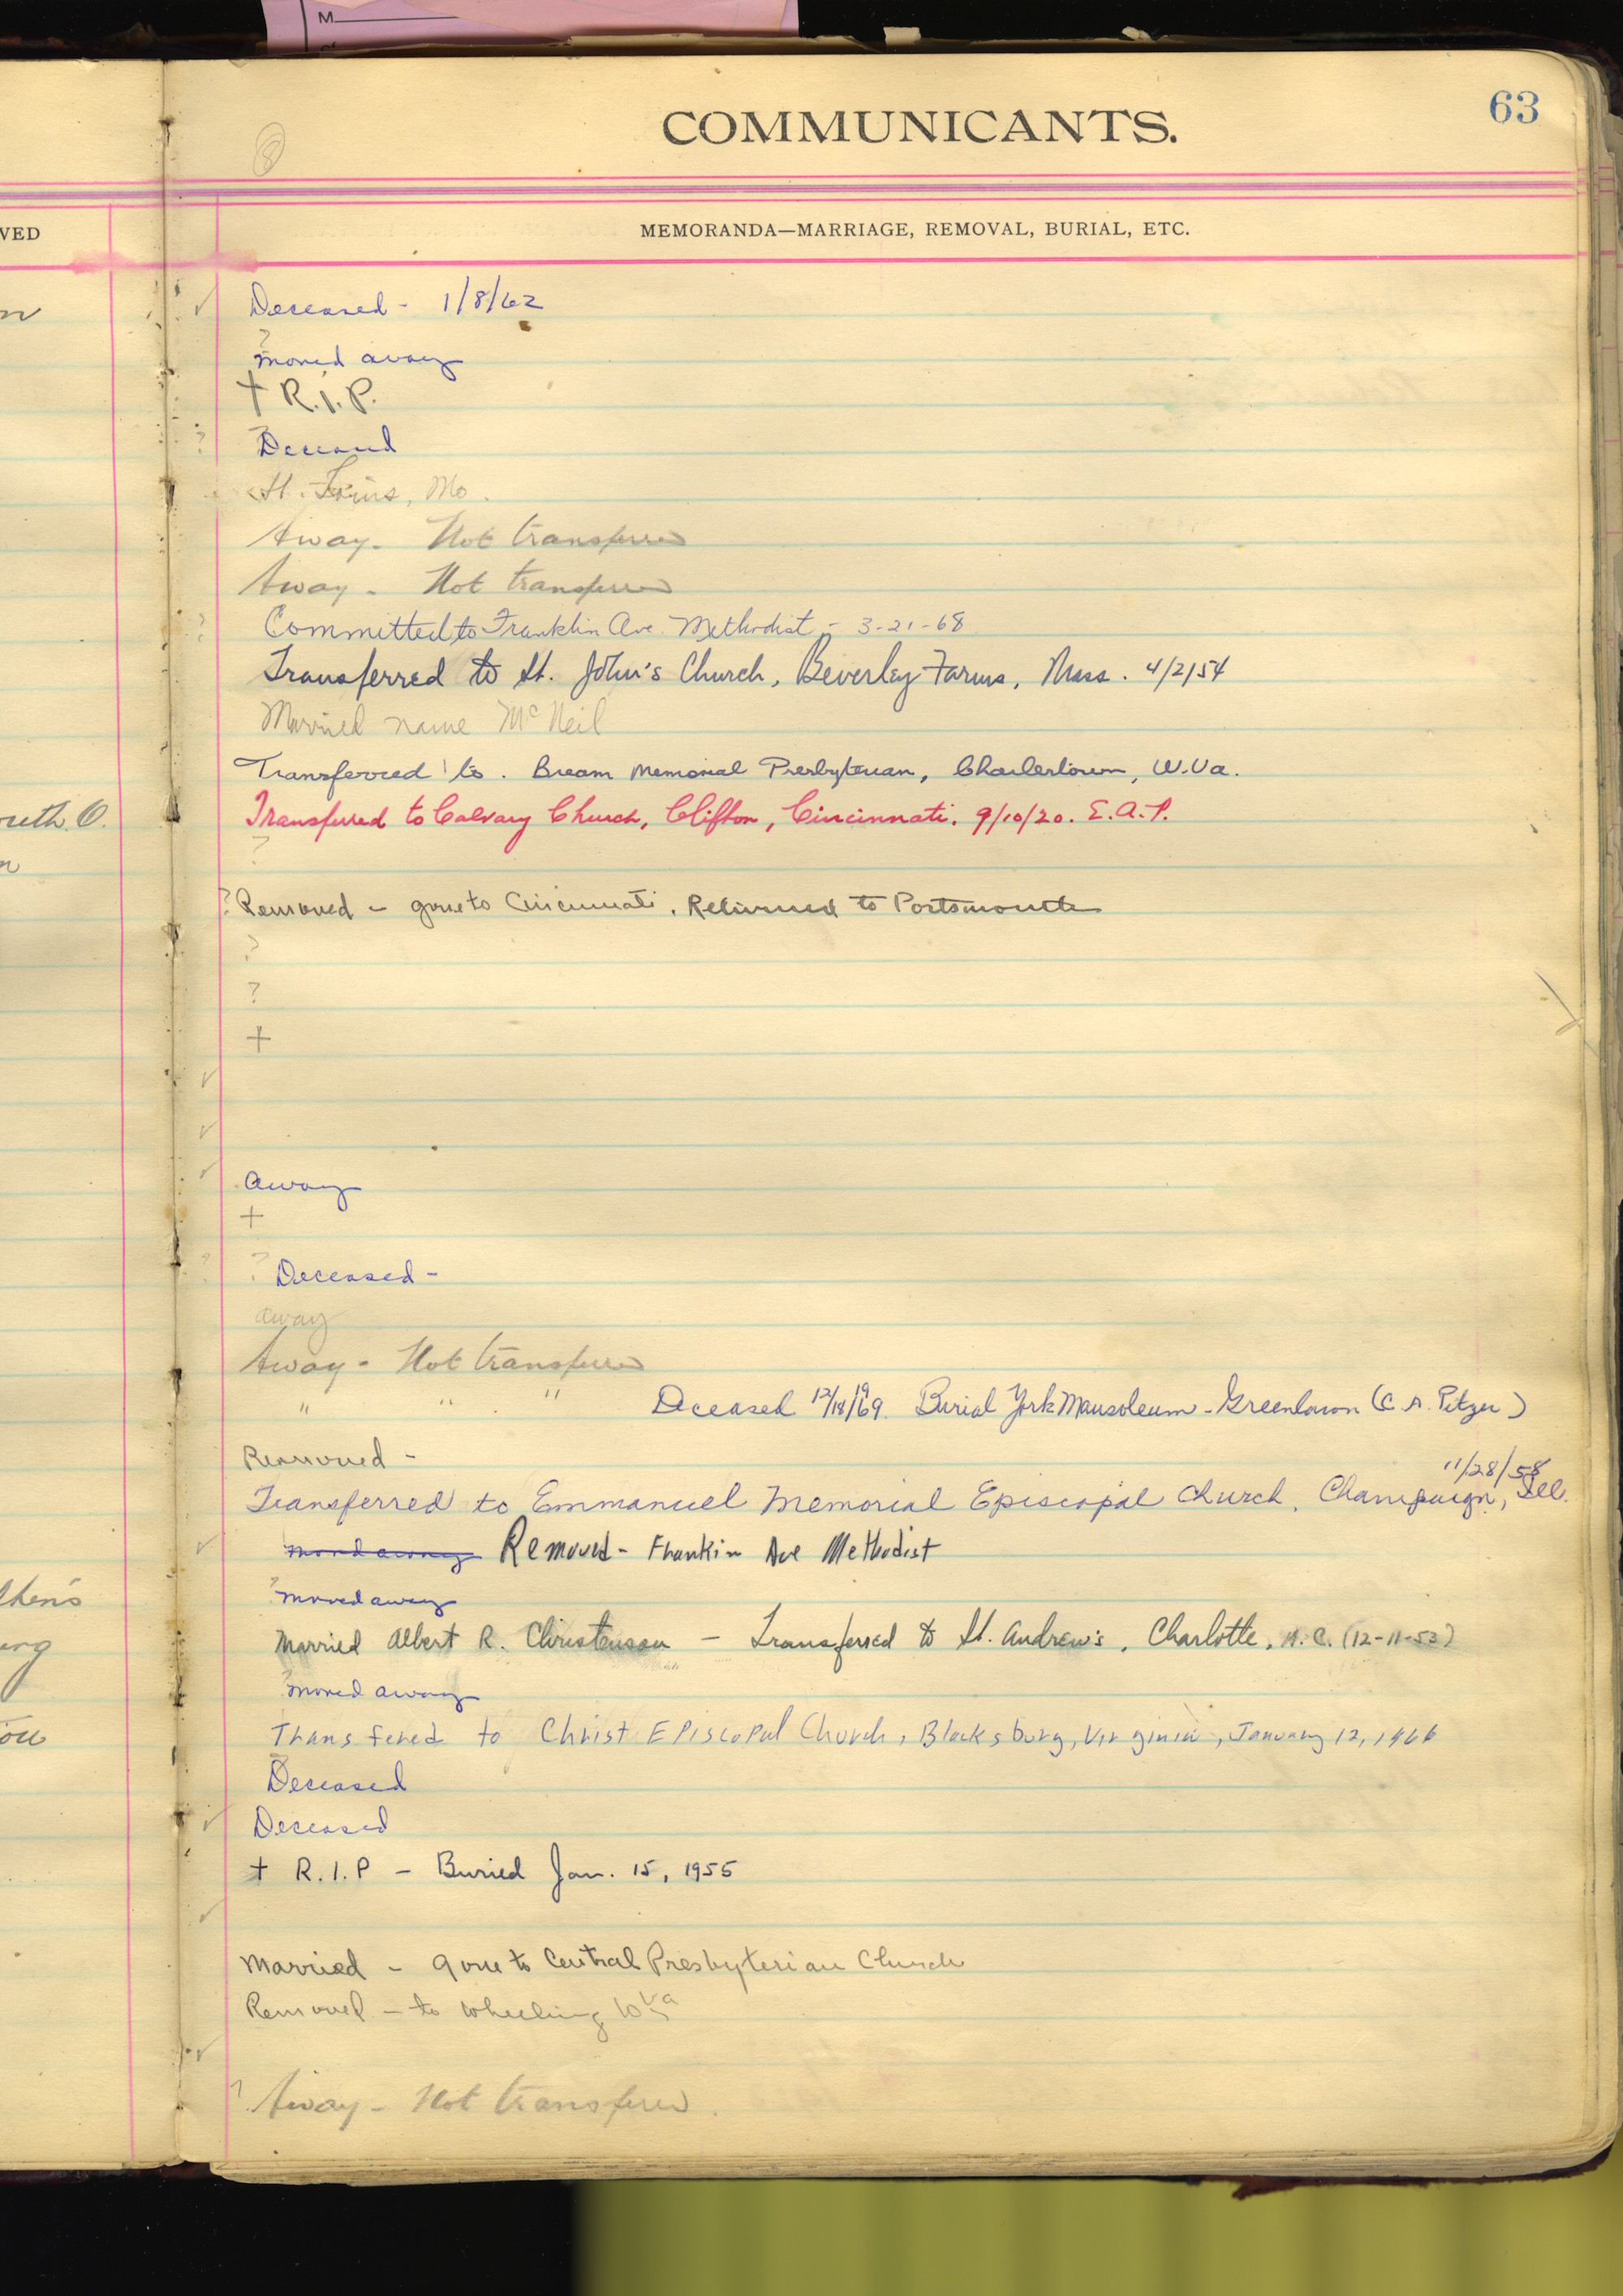 M
COMMUNICANTS.
63
VED
MEMORANDA—MARRIAGE, REMOVAL, BURIAL, ETC.
Deceased - 1/8/62
?
moved away
† R.I.P.
? Deceased
St. Louis, Mo.
Away - Not transferred
Away - Not transferred
? Committed to Franklin Ave. Methodist - 3-21-68
Transferred to St. John's Church, Beverley Farms, Mass. 4/2/54
Married name McNeil
Transferred to Bream Memorial Presbyterian, Charlestown, W.Va.
outh O.
Transferred to Calvary Church, Clifton, Cincinnati. 9/10/20. E.A.P.
?
? Removed - gone to Cincinnati, Returned to Portsmouth
?
?
+
Away
+
? Deceased -
away
Away - Not transferred
" " " Deceased 12/18/69 Burial York Mausoleum - Greenlawn (C. A. Pitzer)
Removed -
11/28/58
Transferred to Emmanuel Memorial Episcopal Church, Champaign, Ill.
moved away Removed - Frankin Ave Methodist
? moved away
Married Albert R. Christenson - Transferred to St. Andrew's, Charlotte, N.C. (12-11-53)
? moved away
Transfered to Christ Episcopal Church, Blacksburg, Virginia, January 12, 1966
Deceased
Deceased
† R.I.P - Buried Jan. 15, 1955
Married - gone to Central Presbyterian Church
Removed - to Wheeling W Va
? Away - Not transferred.